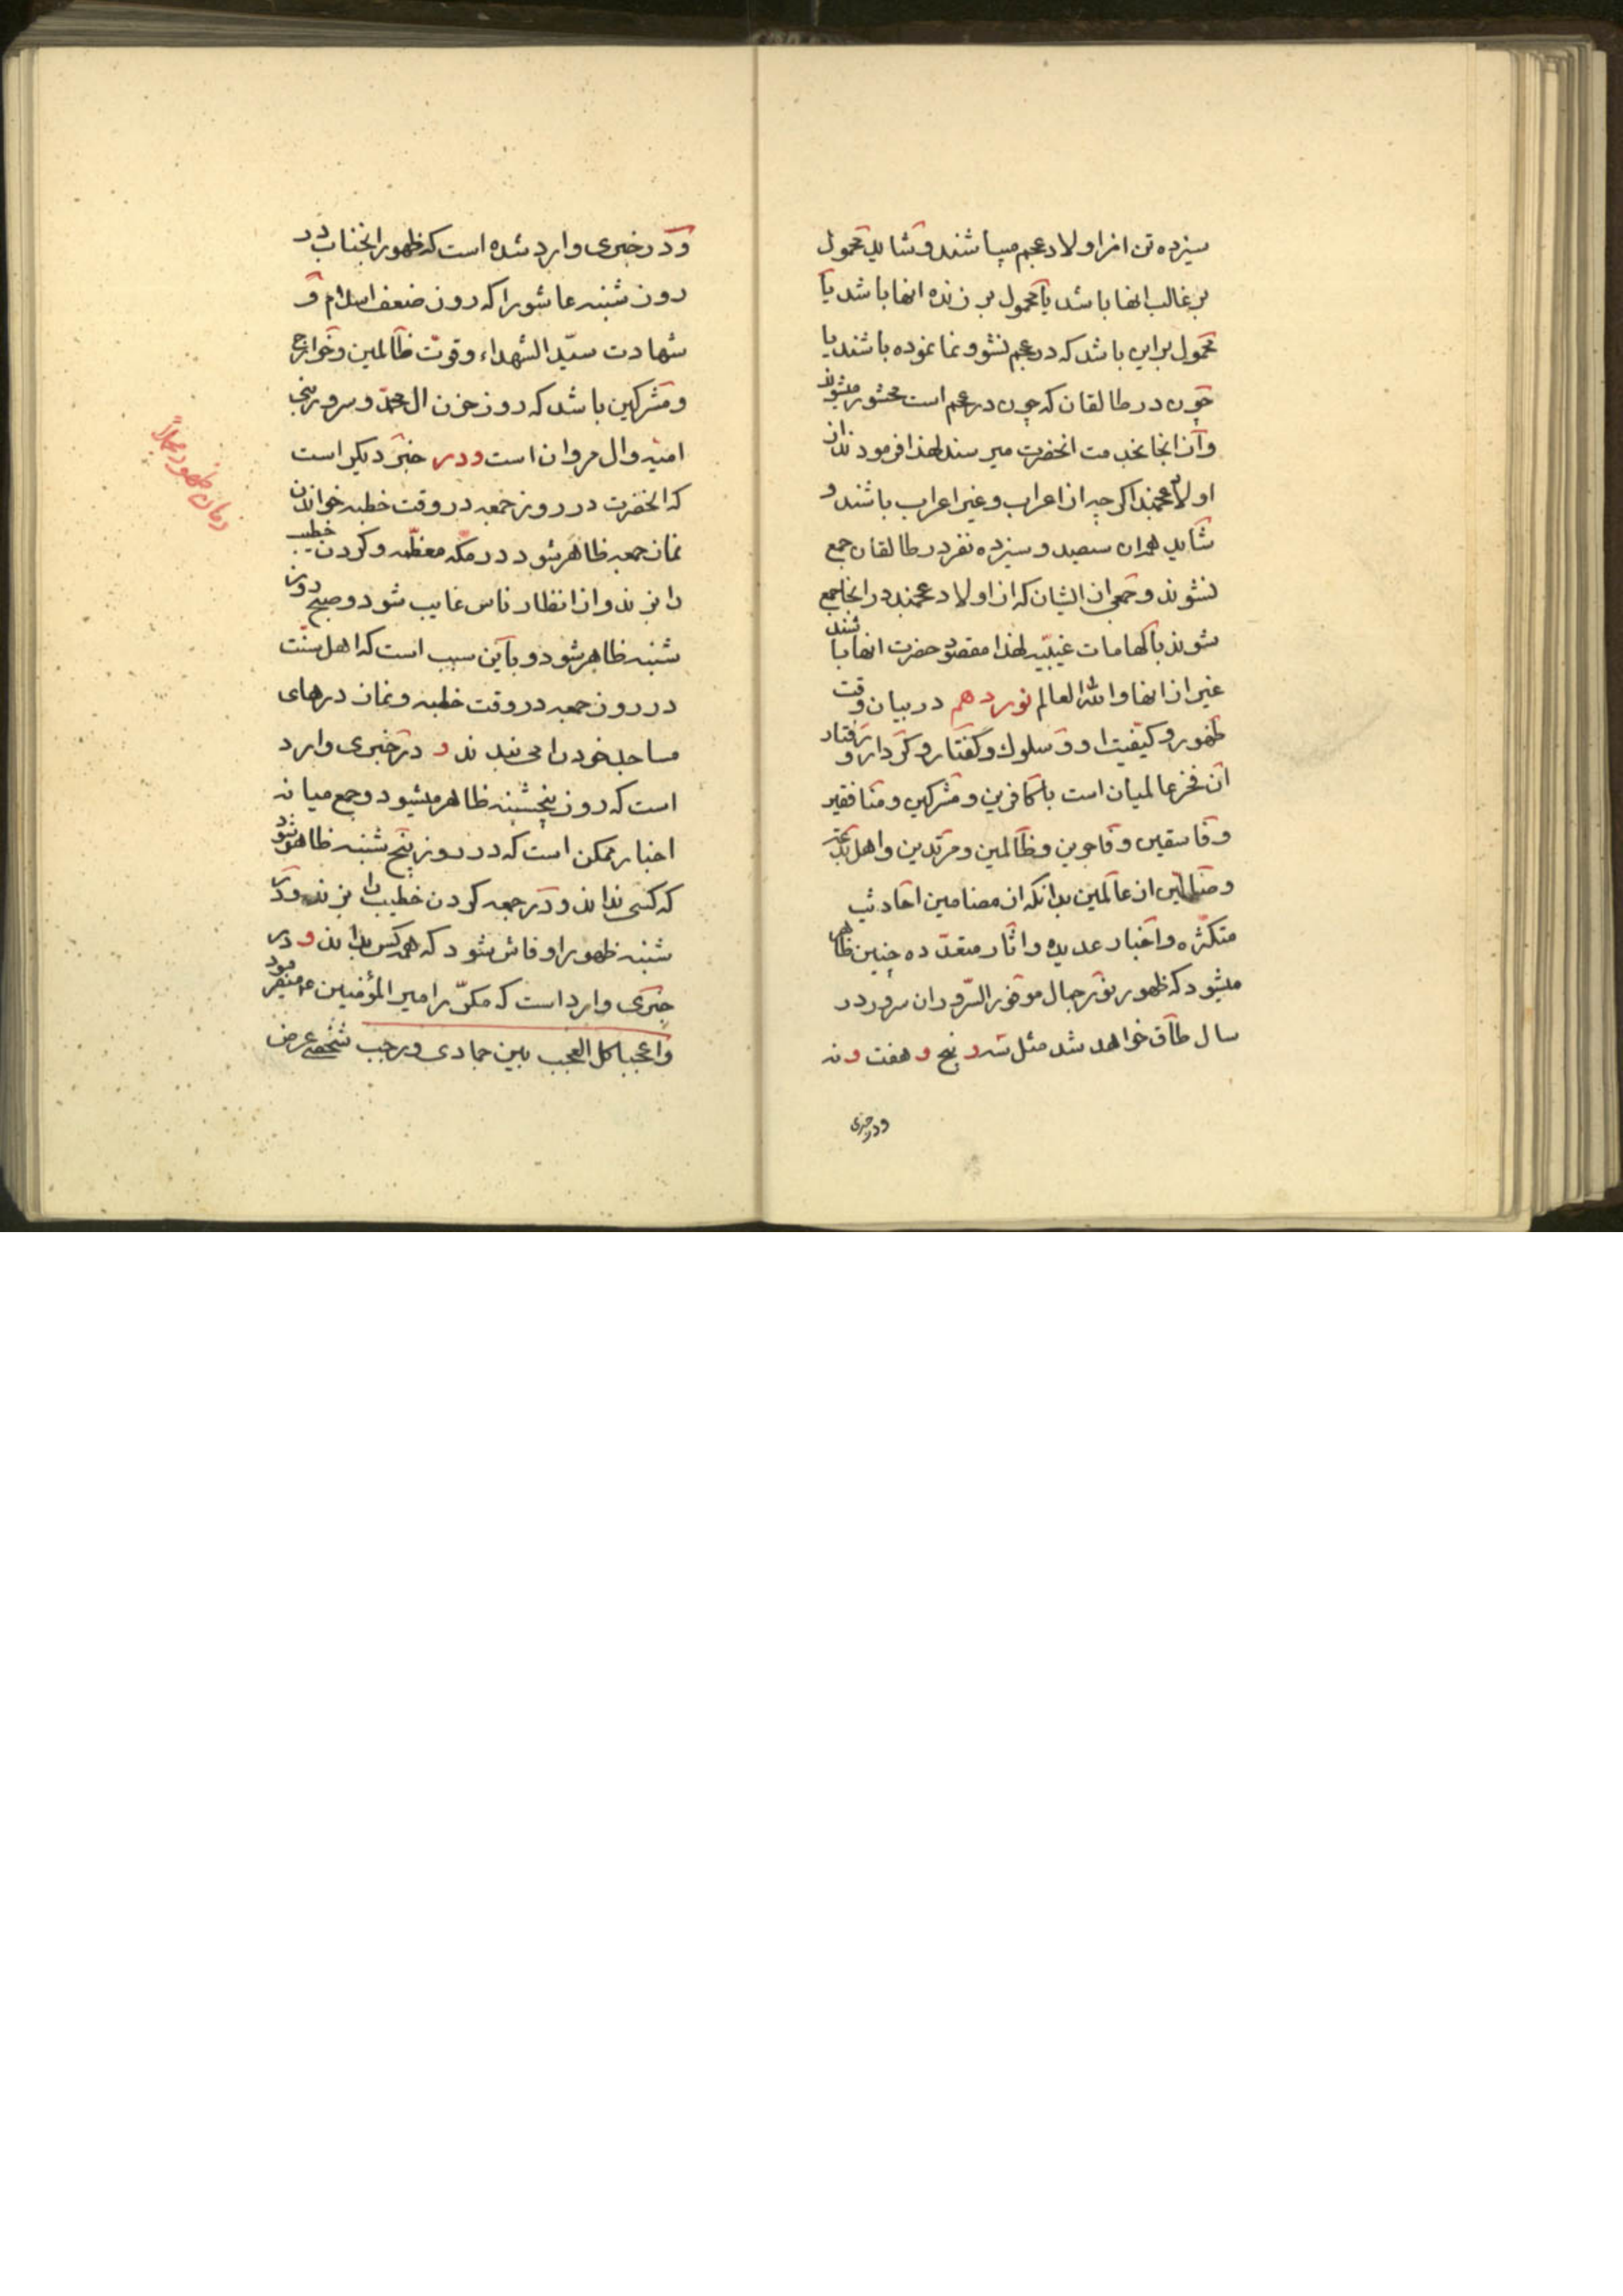 سیزده تن از اولاد عجم میباشند و شاید محمول
بر غالب انها باشد یا محمول بر زنده انها باشد یا
محمول بر این باشد که در عجم نشو و نما نموده باشند یا
چون در طالقان که چون در عجم است محشور میشوند
و از انجا بخدمت انحضرت میرسند لهذا فرمودند از
اولاد عجمند اکرچه از اعراب و غیر اعراب باشند و
شاید همه ان سیصد و سیزده نفر در طالقان جمع
نشوند و جمعی از ایشان که از اولاد عجمند در انجا جمع
شوند بالهامات غیبیّه لهذا مقصود حضرت انها باشند
غیر از انها والله العالم نور دهم در بیان وقت
ظهور و کیفیت او و سلوک و کفتار و کردار و رفتار
آن فخر عالمیان است با کافرین و مشرکین و منافقین
و فاسقین و فاجرین و ظالمین و مرتدین و اهل
و ضالین از عالمین بدانکه از مضامین احادیث
متکثره و اخبار عدیده و اثار متعدّده چنین ظاهر
میشود که ظهور نور جمال موفور السّرور ان سرور در
سال طاق خواهد شد مثل سه و پنج و هفت و نه
ودر خبری
ودر خبری وارد شده است که ظهور انجناب در
روز شنبه عاشورا که روز ضعف اسلام و
شهادت سیّد الشهداء و قوت ظالمین و خوارج
و مشرکین باشد که روز حزن ال محمد و سرور بنی
امیّه و ال مروان است و در خبر دیکر است
که انحضرت در روز جمعه در وقت خطبه خواندن
نماز جمعه ظاهر شود در مکّه معظّمه و کردن خطیب
را بزند و از انظار ناس غایب شود و صبح روز
شنبه ظاهر شود و باین سبب است که اهل سنّت
در روز جمعه در وقت خطبه و نماز درهای
مساجد خود را می بندند و در خبری وارد
است که روز پنجشنبه ظاهر میشود و جمع میانه
اخبار ممکن است که در روز پنج شنبه ظاهر شود
که کسی نداند و در جمعه کردن خطیب را بزند و در
شنبه ظهور او فاش شود که همه کس بدانند و در
خبری وارد است که مکرّر امیر المؤمنین ع میفرمود
واعجبا کل العجب بین جمادی و رجب شخصی عرض
زمان ظهور